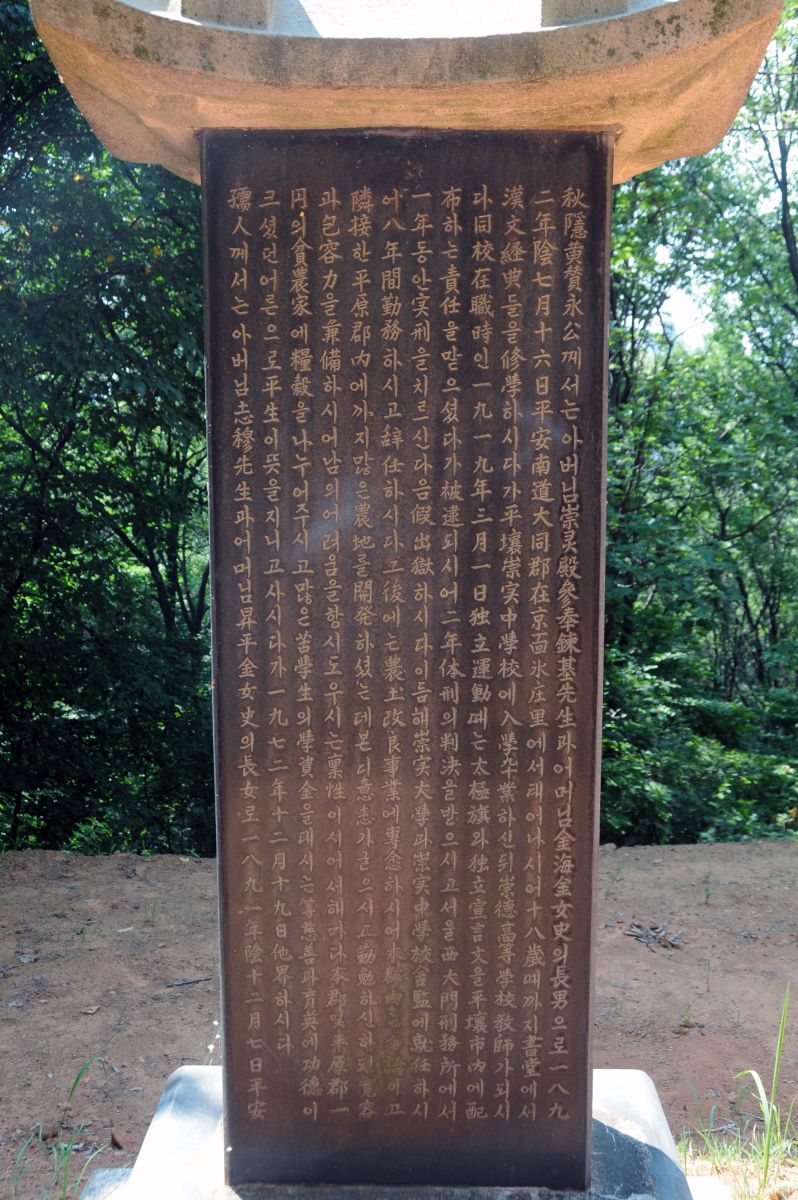 秋隱黃贊永公께서는아버님崇灵殿參奉鍊基先生과어머님金海金女史의長男으로一八九
二年陰七月十六日平安南道大同郡在京面氷庄里에서태어나시어十八歲때까지書堂에서
漢文経典들을修學하시다가平壤崇实中學校에入學卆業하신뒤崇德高等學校敎師가되시
다同校在職時인一九一九年三月一日独立運動때는太極旗와独立宣言文을平壤市內에配
布하는責任을맡으셨다가被逮되시어二年体刑의判決을받으시고서울西大門刑務所에서
一年동안实刑을치르신다음假出獄하시다이듬해崇实大學과崇实中學校舍監에就任하시
어八年間勤務하시고辞任하시다그後에는農土改良事業에專念하시어本鄕에는勿論이고
隣接한平原郡內에까지많은農地를開発하셨는데본디意志가굳으시고勤勉하신한편寬容
과包容力을兼備하시어남의어려운을항시도우시는禀性이시어서해마다本郡및平原郡一
円의貧農家에糧穀을나누어주시고많은苦學生의學資金을대시는等慈善과育英에功德이
크셨던어른으로平生이뜻을지니고사시다가一九七二年十二月十九日他界하시다
孺人께서는아버님志穆先生과어머님昇平金女史의長女로一八九一年陰十二月七日平安